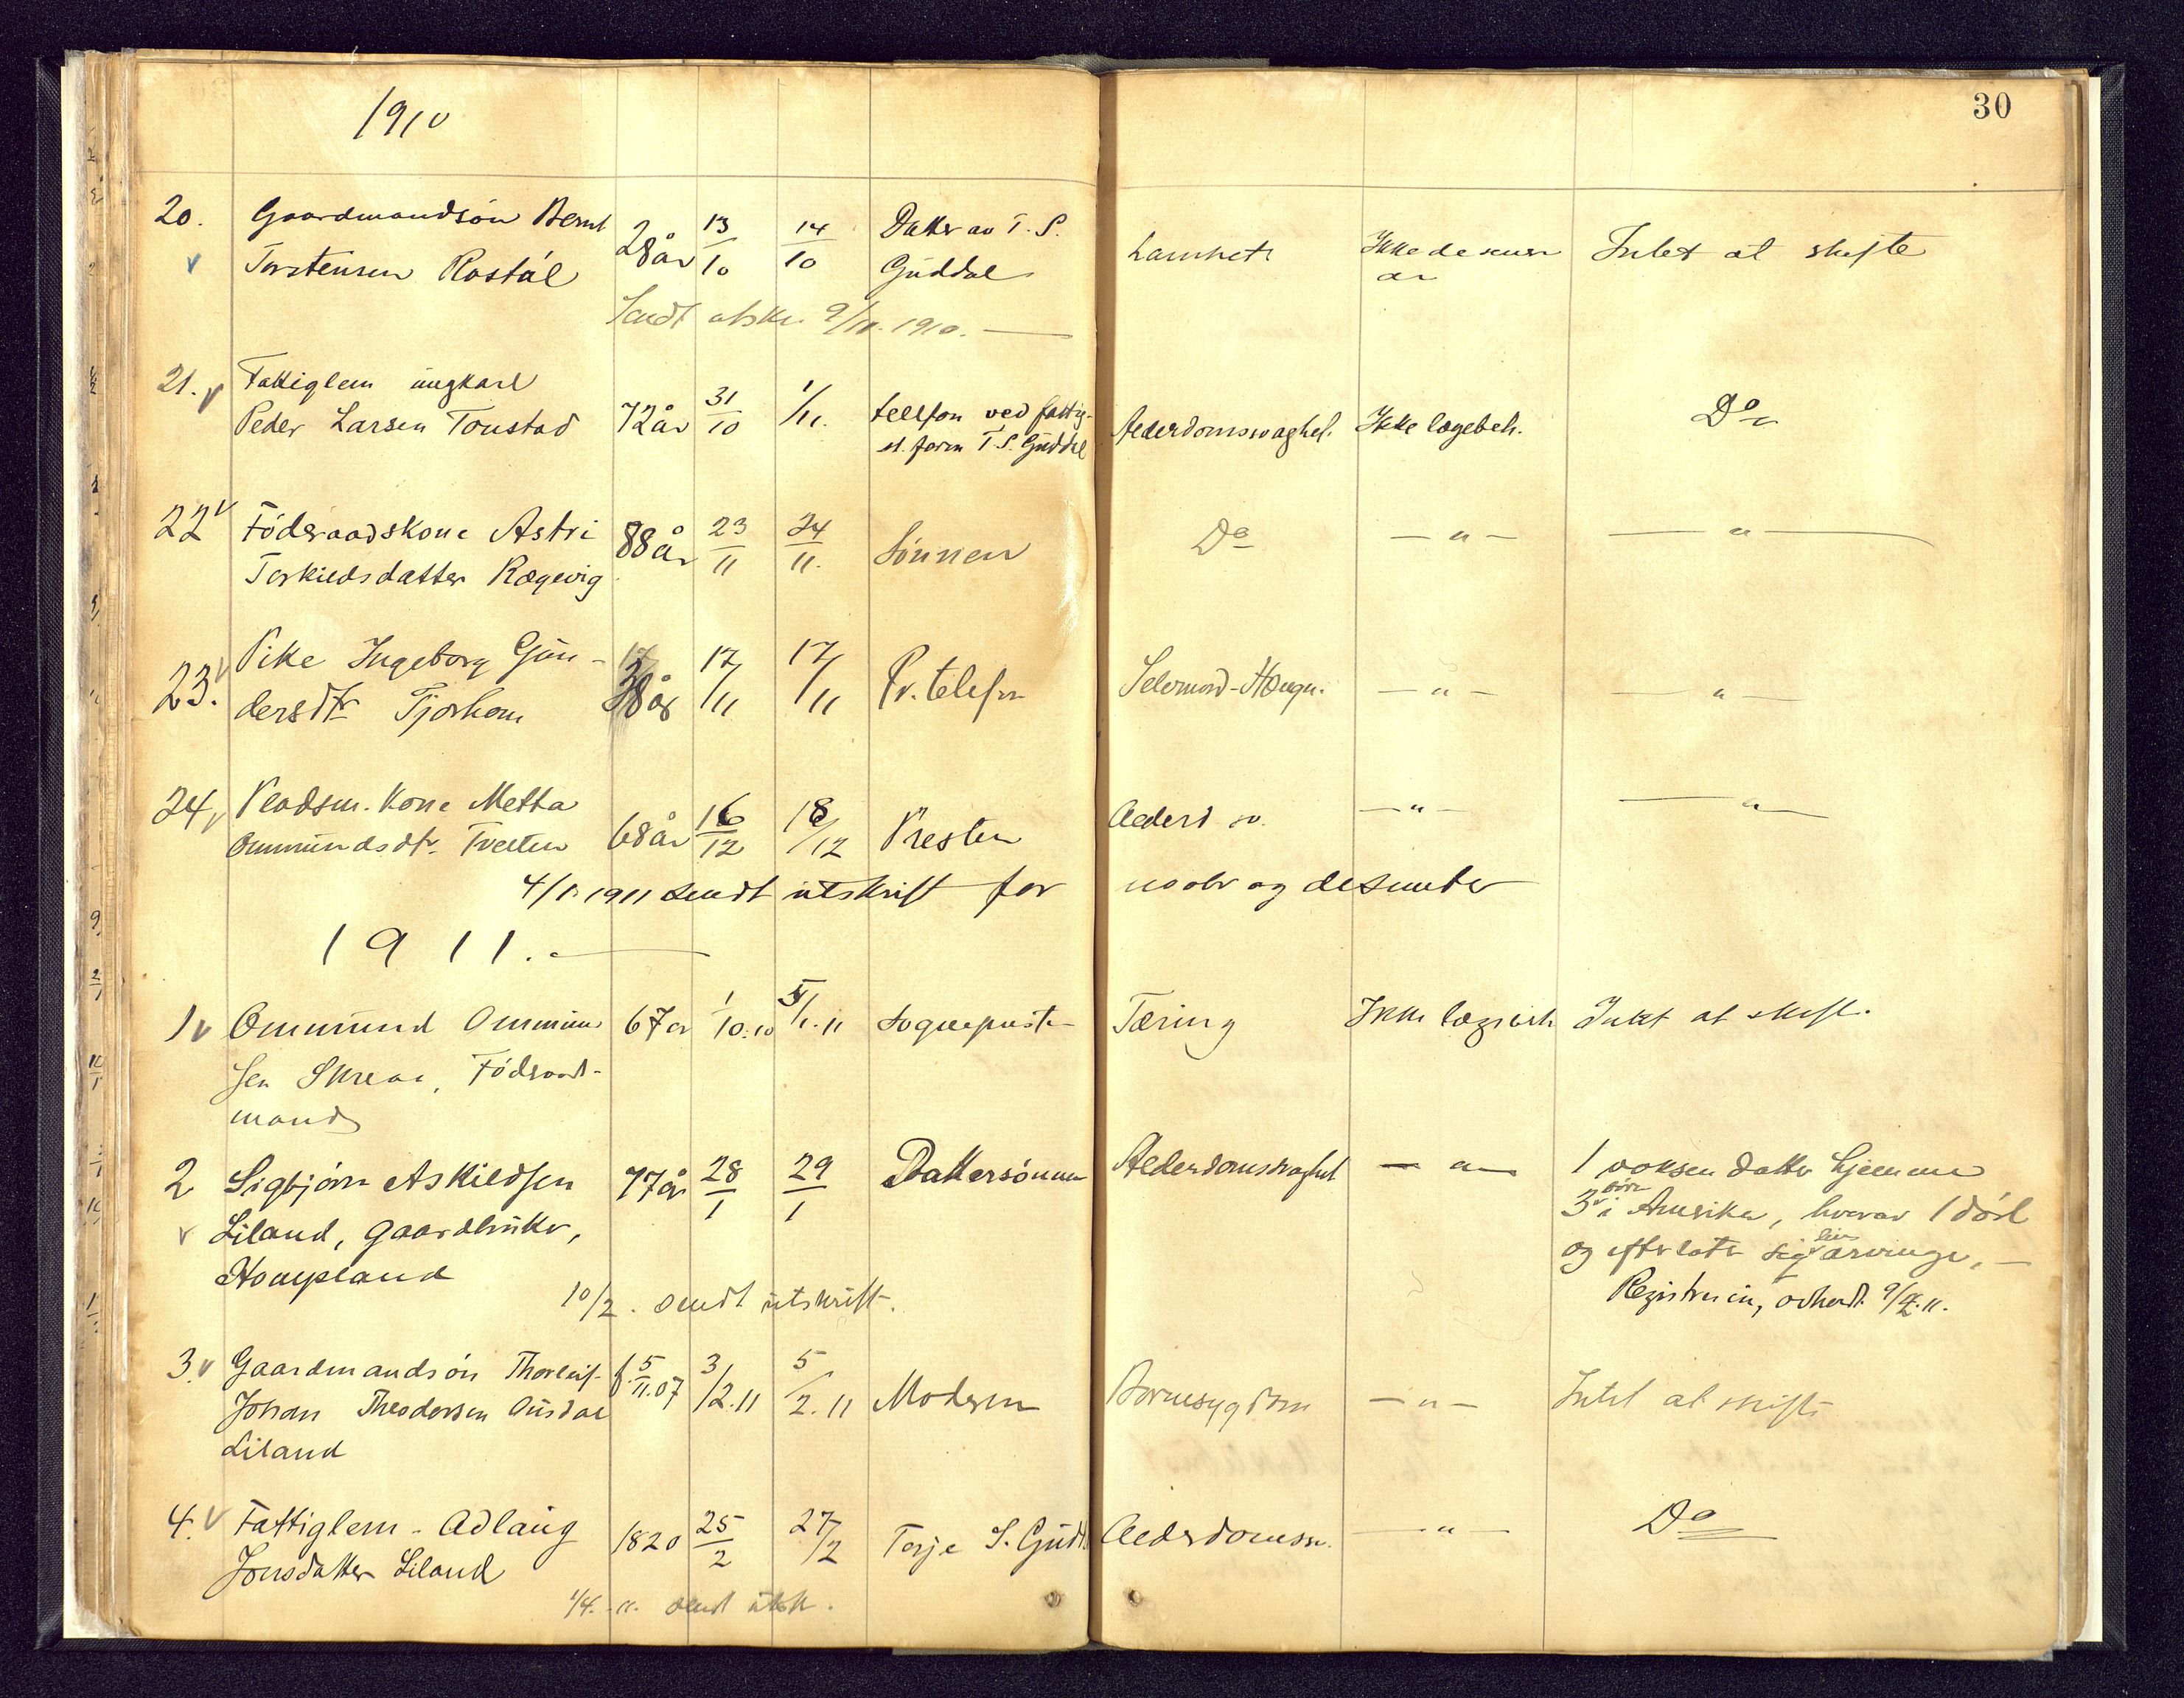 1910
30
20. Gaardmandsøn Bernt 28 år 13/10 14/10 Datter av T. S. Lamhet Ikke de senere Intet at skifte
Torstensen Rostøl Guddal år
Sendt utskr. 9/11. 1910.
21. Fattiglem ungkarl
Peder Larsen Tonstad 72 år 31/10 1/11. telefon ved fattig- Alderdomssvaghet. Ikke lægebeh. Do
st. form T. S. Guddal
22 Føderaadskone Astri 88 år 23/11 24/11. Sønnen Do — " — — " —
Torkildsdatter Rægevig
23. Pike Ingeborg Gun- 38 år 17/11 17/11 Pr. telefon Selvmord - Hængn. — " — — " —
dersdtr Tjorhom
24, Pladsm. Kone Metta 68 år 16/12 18/12 Presten Alderd sv. — " — — " —
Ommundsdtr. Tveiten
4/1. 1911 sendt utskrift for novbr og desember
1911.
1 Ommund Ommun 67 år 1/10.10 5/1. 11 Sognepresten Tæring Ikke lægebeh Intet at skift.
sen Skreaa, Føderaad-
mand
2 Sigbjørn Askildsen 77 år 28/1 29/1 Dattersønnen Alderdomssvaghet — " — 1 voksen datter hjemme
Liland, gaardbruker, 3 børn i Amerika, hvorav 1 død
Hompland og efterlater sig livsarvinger, —
10/2. sendt utskrift. Registrering avholdt 9/2. 11.
3. Gaardmandsøn Thorleif f. 5/11.07 3/2. 11 5/2. 11 Moderen Barnesygdom — " — Intet at skifte
Johan Theodorsen Ousdal
Liland
4. Fattiglem - Adlaug 1820 25/2 27/2 Torje S. Gudd. Alderdomssv. — " — Do
Jonsdatter Liland
1/4. 11. sendt utskr.